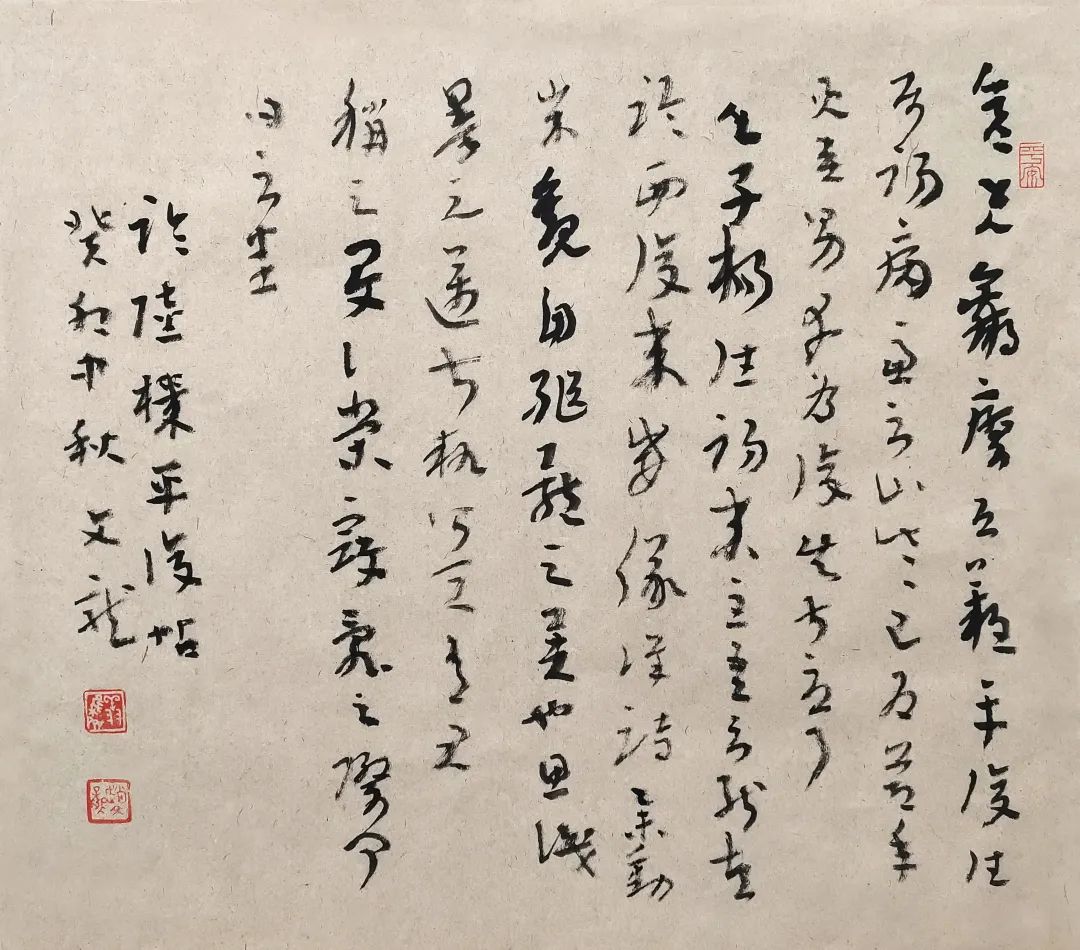 彦先羸瘵恐難平復往
屬初病慮不止此此已為慶承
使唯男幸為復失前憂耳
吳子楊往初來主吾不能盡
臨西復來威儀詳跱舉動
成觀自軀體之美也思識
量之邁前執所恒有宜
稱之夏伯榮寇亂之際聞
問不悉
臨陸機平復帖
癸卯中秋文龍